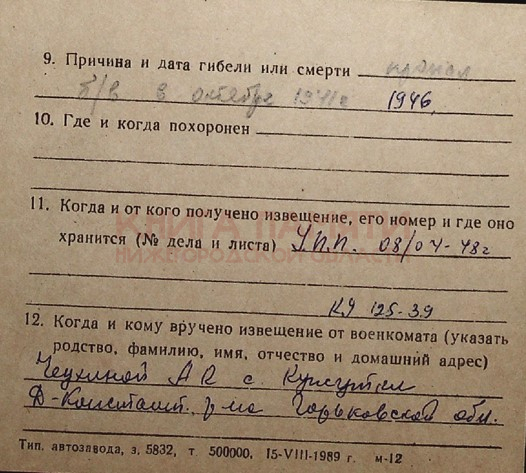 9. Причина и дата гибели или смерти пропал
б/в в октябре 1941г 1946.
10. Где и когда похоронен
11. Когда и от кого получено извещение, его номер и где оно
КНИГА ПАМЯТИ
хранится (№ дела и листа) У.П.П. 08/04-48г
НИЖЕГОРОДСКОЙ ОБЛАСТИ
125-39
12. Когда и кому вручено извещение от военкомата (указать
родство, фамилию, имя, отчество и домашний адрес)
с.
Д-Констант. р-на Горьковской обл.
Тип. автозавода, з. 5832, т 500000. 15-VIII-1989 г. м-12